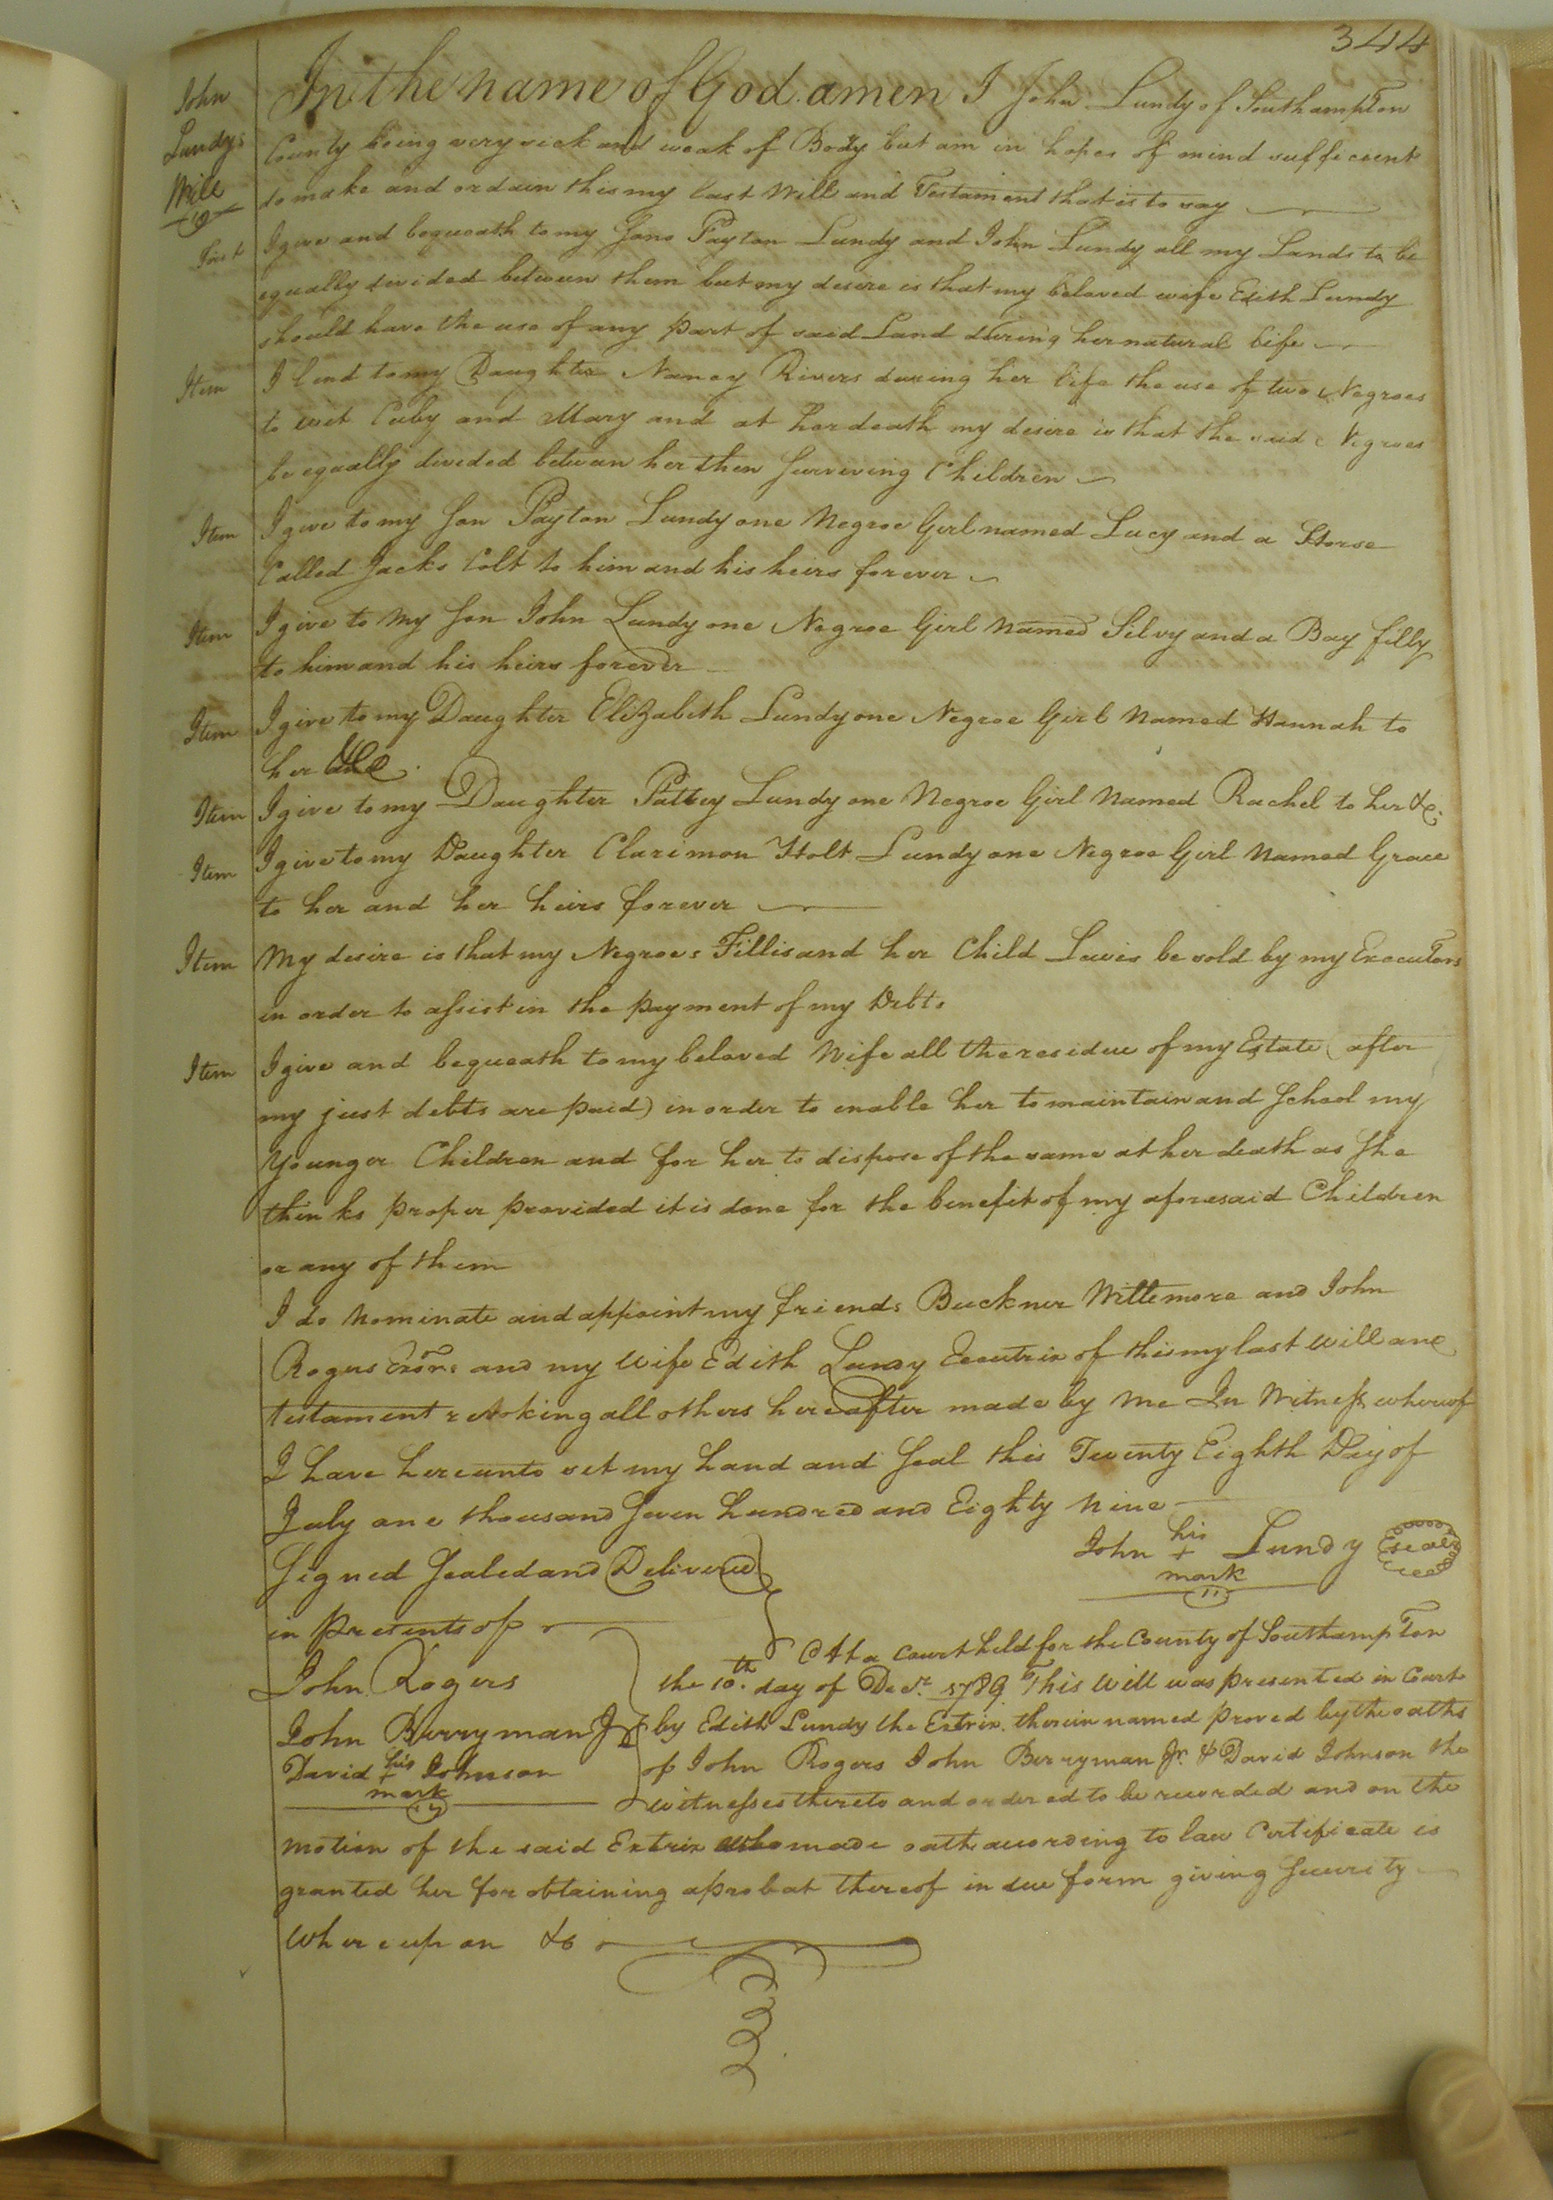 344
John
Lundy's
Will
In the name of God amen I John Lundy of Southampton
County being very sick and weak of Body but am in hopes of mind sufficient
to make and ordain this my last Will and Testament that is to say
First I give and bequeath to my Sons Payton Lundy and John Lundy all my Lands to be
equally devided between them but my desire is that my beloved wife Edith Lundy
should have the use of any part of said Land during her natural life
Item I lend to my Daughter Nancy Rivers during her life the use of two Negroes
to wit Cuby and Mary and at her death my desire is that the said Negroes
be equally divided between her then surviving Children
Item I give to my Son Payton Lundy one Negroe Girl named Lucy and a Horse
Called Jacks Colt to him and his heirs forever
Item I give to my Son John Lundy one Negroe Girl Named Silvy and a Bay filly
to him and his heirs forever
Item I give to my Daughter Elizabeth Lundy one Negroe Girl Named Hannah to
her &c.
Item I give to my Daughter Pattey Lundy one Negroe Girl Named Rachel to her &c.
Item I give to my Daughter Clarimon Holt Lundy one Negroe Girl Named Grace
to her and her heirs forever
Item My desire is that my Negroes Fillis and her Child Lewis be sold by my Executors
in order to assist in the payment of my Debts
Item I give and bequeath to my beloved Wife all the residue of my Estate (after
my just debts are paid) in order to enable her to maintain and School my
Younger Children and for her to dispose of the same at her death as She
thinks proper provided it is done for the benefit of my aforesaid Children
or any of them
I do Nominate and appoint my friends Buckner Wittemore and John
Rogers Exors and my Wife Edith Lundy Eecutrix of this my last Will and
testament revoking all others hereafter made by me In Witness whereof
I have hereunto set my hand and Seal this Twenty Eighth Day of
July one thousand Seven hundred and Eighty Nine
John his + mark Lundy seal
Signed Sealed and Delivered
in presents of
John Rogers
John Berryman Jr
David his + mark Johnson
At a Court held for the County of Southampton
the 10th. day of Decr. 1789. This Will was presented in Court
by Edith Lundy the Extrix. therein named proved by the oaths
of John Rogers John Berryman Jr. & David Johnson the
witnesses thereto and ordered to be recorded and on the
motion of the said Extrix who made oath according to law Certificate is
granted her for obtaining a probat thereof in due form giving Security
Whereupon &c